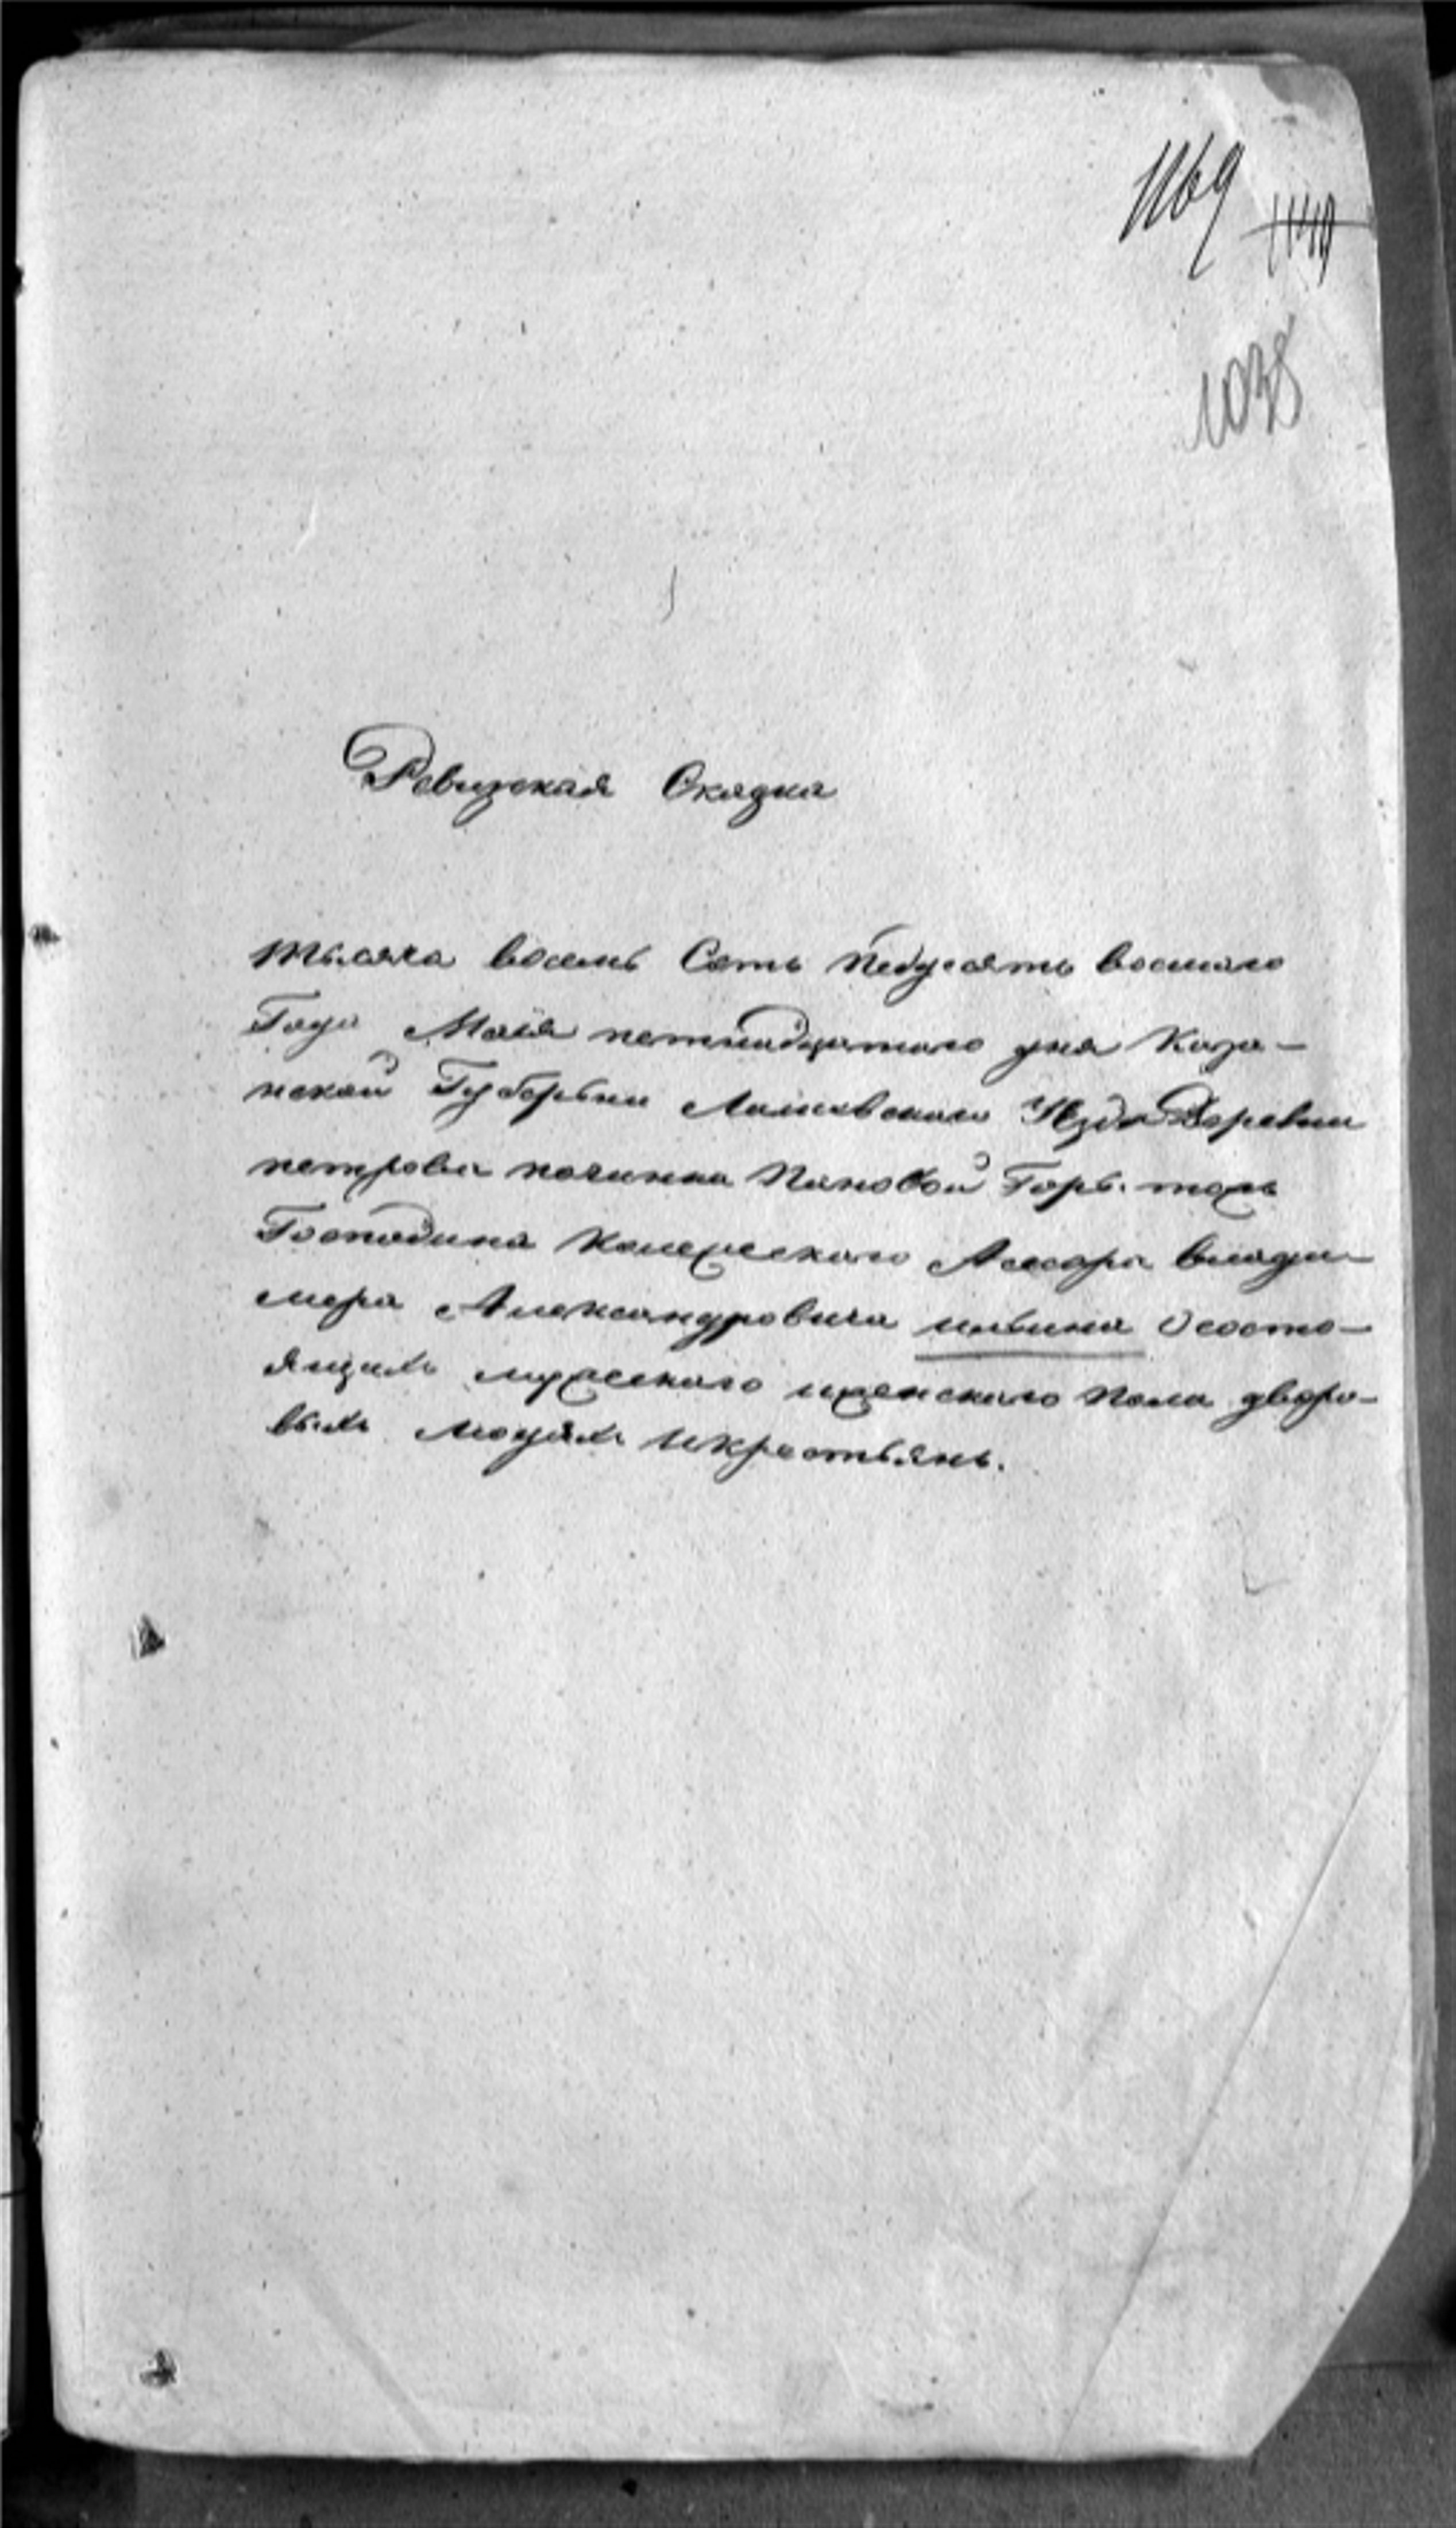 1169
1149
1038
Ревизская Сказка
тысяча восемь Сотъ Педесятъ восмаго
Года Маія петнадцатаго дня Каза-
нской Губерьни Лаишевскаго Уѣзда Деревни
петрова починка Пановой Горы тожъ
Господина Колежскаго Ассора влади-
мера Александровича ильина Ососто-
ящихъ мужескаго иженскаго пола дворо-
выхъ людяхъ икрестьянъ.